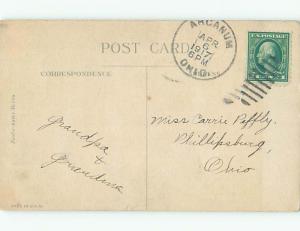 POST CARD
ARCANUM
APR
6
6 PM
1917
OHIO
U.S. POSTAGE
CORRESPONDENCE
Grandpa
&
Grandma
Miss Carrie Peffly.
Phillipsburg,
Ohio